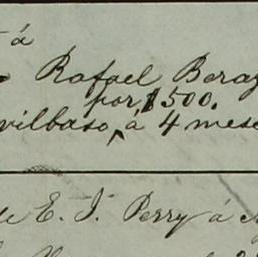 á
Rafael Beraz
por $500.
vilbaso, á 4 mese
de E. J. Perry á